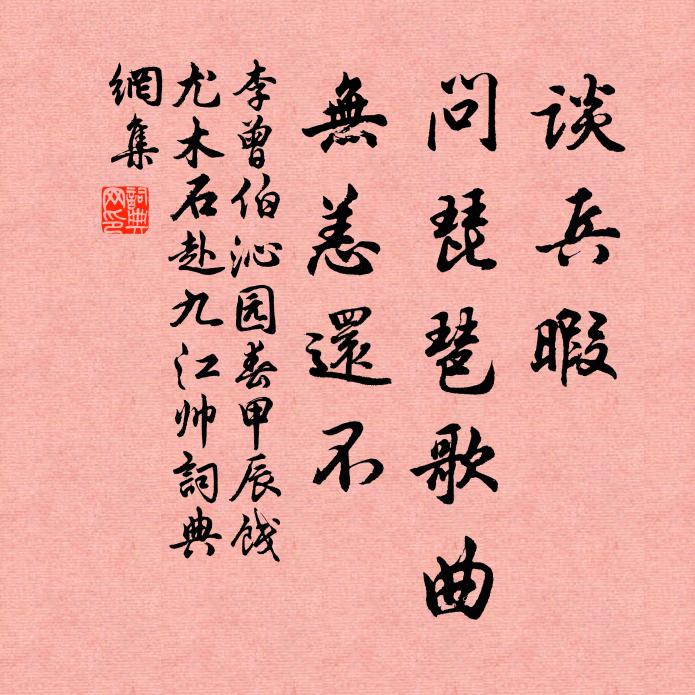 谈兵暇
问琵琶歌曲
無恙還不
李曾伯沁园春甲辰饯
尤木石赴九江帅詞典
網集
詞典
网印